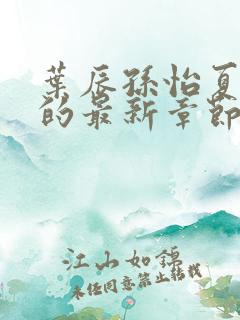 葉辰孫怡夏
的最新章節
江山如錦
未经同意禁止转载